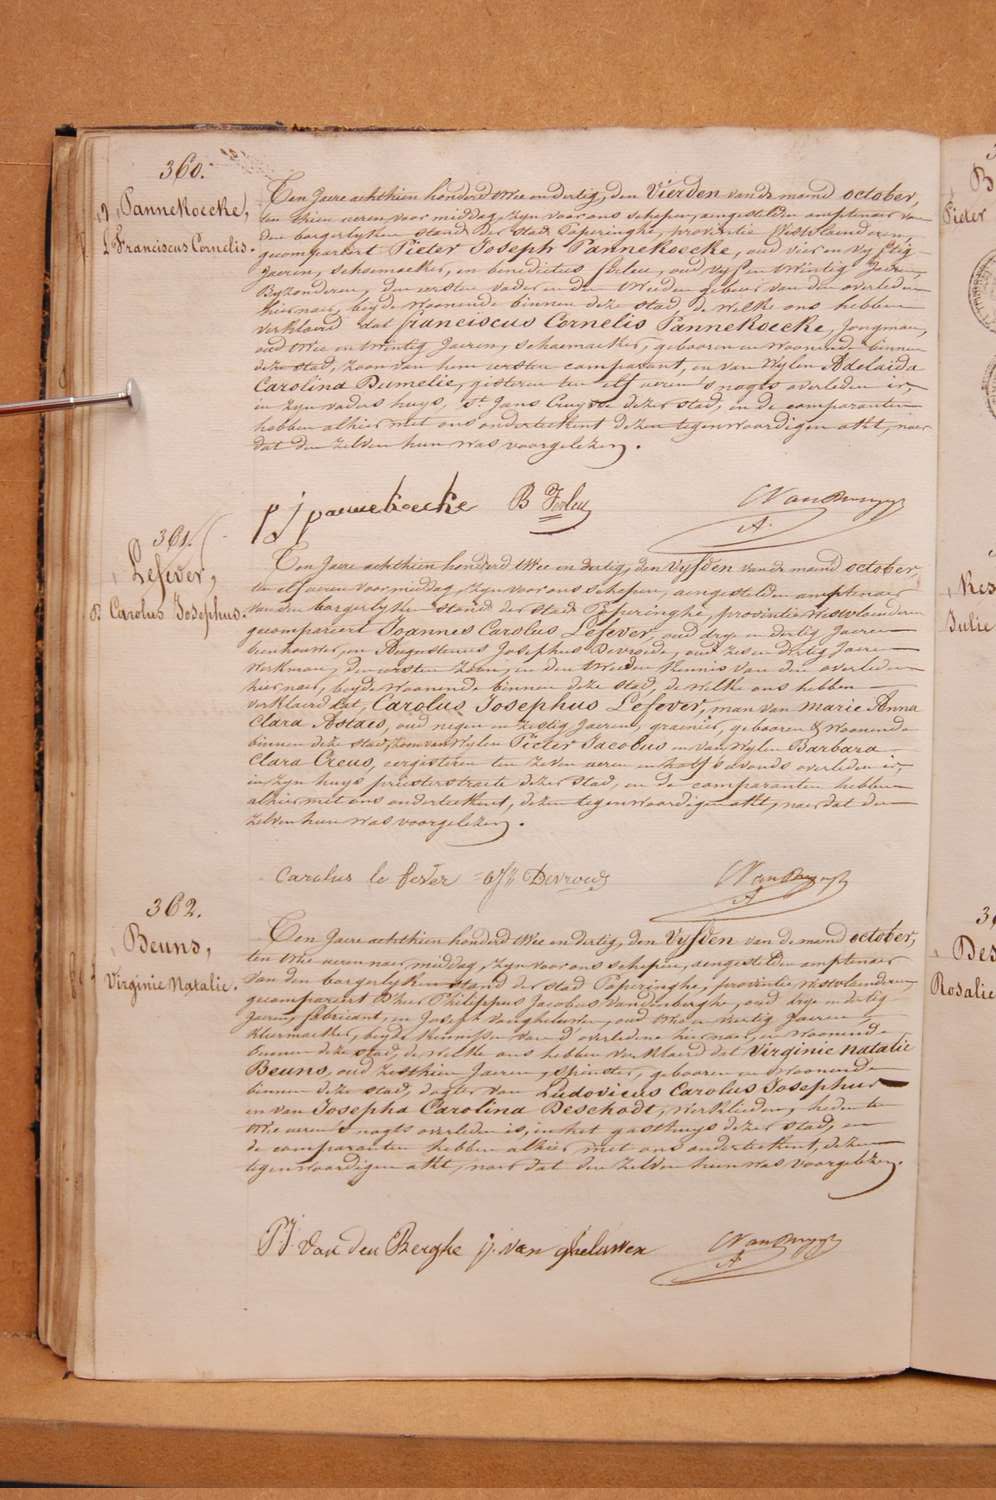 360.
Pannekoecke,
Franciscus Cornelis.
Ten Jaere achthien honderd twee en dertig, den Vierden van de maend october,
ten thien ueren voor middag, zyn voor ons schepen, aengestelden amptenaer van
den borgerlyken stand der stad Poperinghe, provintie Westvlaenderen,
gecompareert Pieter Joseph Pannekoecke, oud vier en vyftig
Jaeren, schoemaeker, en benedictus ferleu, oud vyf en twintig Jaeren,
Byzonderen, den eersten vader en den tweeden gebuer van den overleden
hiernaer, beyde woonende binnen deze stad, de welke ons hebben
verklaerd dat franciscus Cornelis Pannekoecke, Jongman,
oud twee en twintig Jaeren, schoemaeker, gebooren en woonende binnen
deze stad, zoon van hem eersten comparant, en van wylen Adelaida
Carolina Dumelie, gisteren ten elf ueren 's nagts overleden is,
in zyn vaders huys, St. Jans Cruysse dezer stad, en de comparanten
hebben alhier met ons onderteekent dezen tegenwoordigen akt, naer
dat den zelven hun was voorgelezen.
pj pannekoecke B Ferleu
361.
Lefever,
Carolus Josephus.
Ten Jaere achthien honderd twee en dertig, den Vyfden van de maend october,
ten elf ueren voor middag, zyn voor ons schepen, aengestelden amptenaer
van den borgerlyken stand der stad Poperinghe, provintie Westvlaenderen
gecompareert Joannes Carolus Lefever, oud drye en dertig Jaeren
en Augustinus Josephus Devroede, oud zes en dertig Jaeren
werkman, den eersten zoon, en den tweeden kennis van den overleden
hiernaer, beyde woonende binnen deze stad, de welke ons hebben
verklaerd dat, Carolus Josephus Lefever, man van Marie Anna
Clara Astaes, oud negen en zestig Jaeren, graenier, gebooren & woonende
binnen deze stad, zoon van wylen Pieter Jacobus en van wylen Barbara
Clara Creus, eergisteren ten zeven ueren en half 's avonds overleden is,
in zyn huys priesterstraete dezer stad, en de comparanten hebben
alhier met ons onderteekent, dezen tegenwoordigen akt, naer dat den
zelven hun was voorgelezen.
Carolus le fever Devroede
362.
Beuns,
Virginie Natalie.
Ten Jaere achthien honderd twee en dertig, den Vyfden van de maend october,
ten twee ueren naer middag, zyn voor ons schepen, aengestelden amptenaer
van den borgerlyken stand der stad Poperinghe, provintie Westvlaenderen,
gecomparent d'heer Philippus Jacobus Vandenberghe, oud drye en dertig
Jaeren, fabricant, en Joseph Vangheluwen, oud twee en veertig Jaeren,
kleermaeker, beyde kennissen van d'overledene hiernaer, en woonende
binnen deze stad, de welke ons hebben verklaerd dat Virginie Natalie
Beuns, oud zesthien Jaeren, spinster, gebooren en woonende
binnen deze stad, dogter van Ludovicus Carolus Josephus
en van Josepha Carolina Deschodt, werklieden, heden ten
twee ueren 's nagts overleden is, in het gasthuys dezer stad, en
de comparanten hebben alhier met ons onderteekent, dezen
tegenwoordigen akt, naer dat den zelven hun was voorgelezen.
PJ. Van den Berghe j. van gheluwen
Pieter
Julie
Rosalie